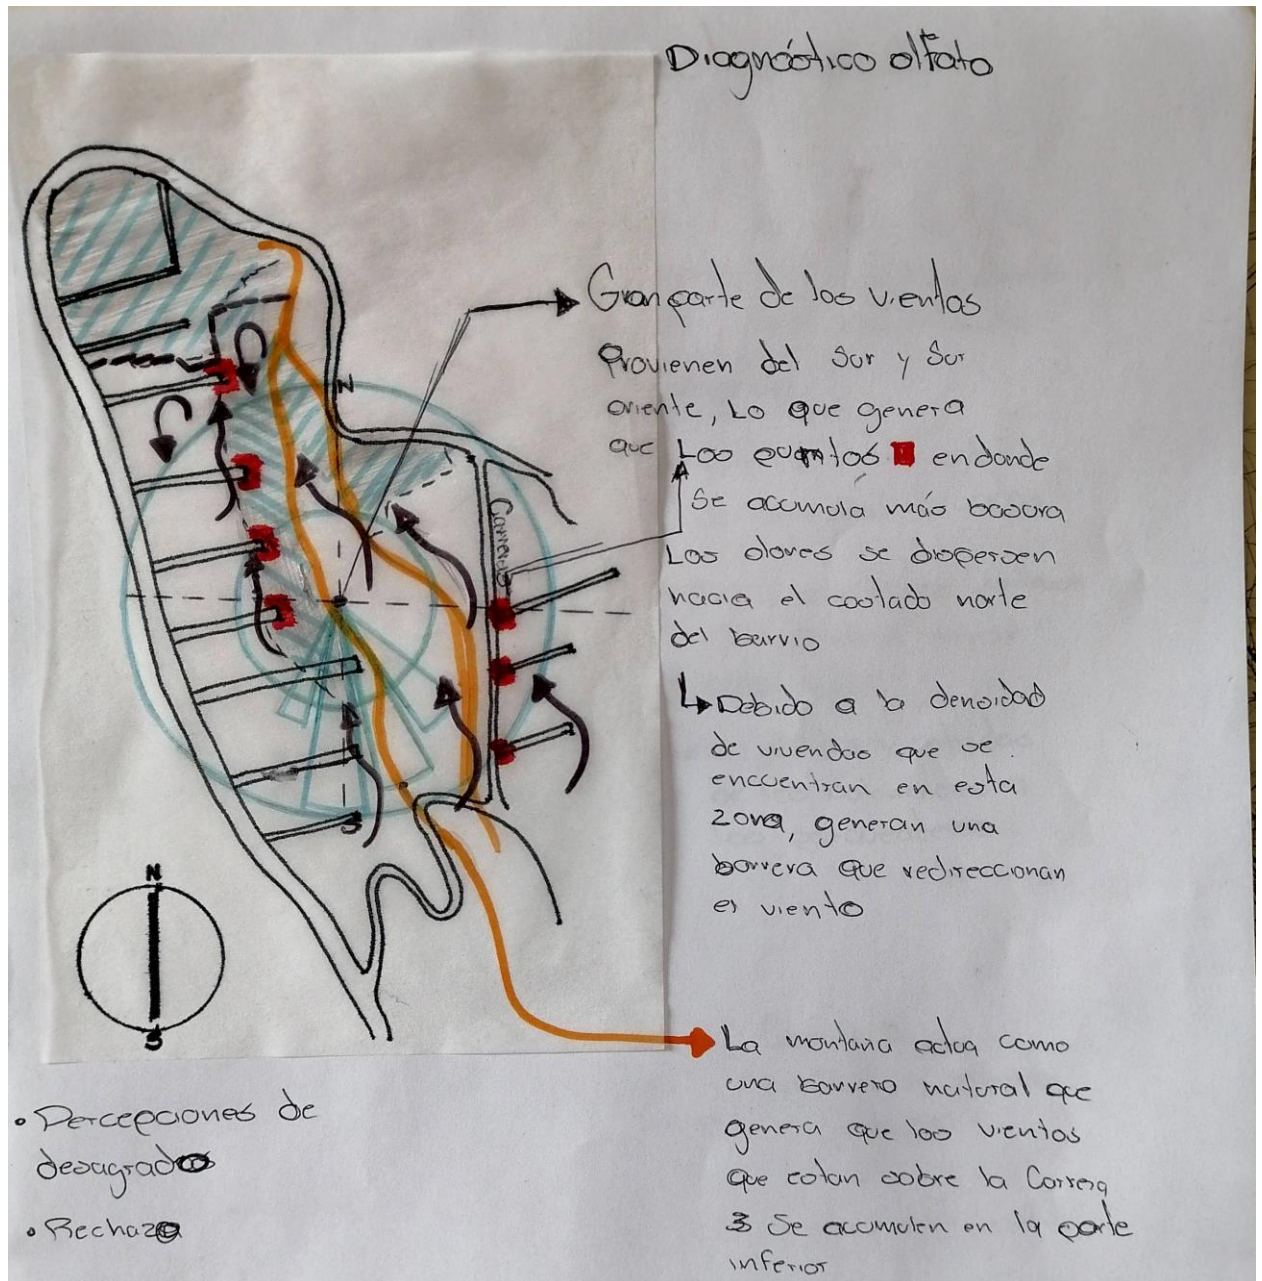 Diagnóstico olfato
Gran parte de los vientos
Provienen del sur y sur
oriente, Lo que genera
que Los puntos en donde
Se acumula más basura
Los olores se dispersen
hacia el costado norte
del barrio
Debido a la densidad
de viviendas que se
encuentran en esta
zona, generan una
barrera que redireccionan
el viento
La montaña actua como
una barrera natural que
genera que los vientos
que estan sobre la Carrera
3 Se acumulen en la parte
inferior
N
Carrera
S
N
S
• Percepciones de
desagrado
• Rechazo